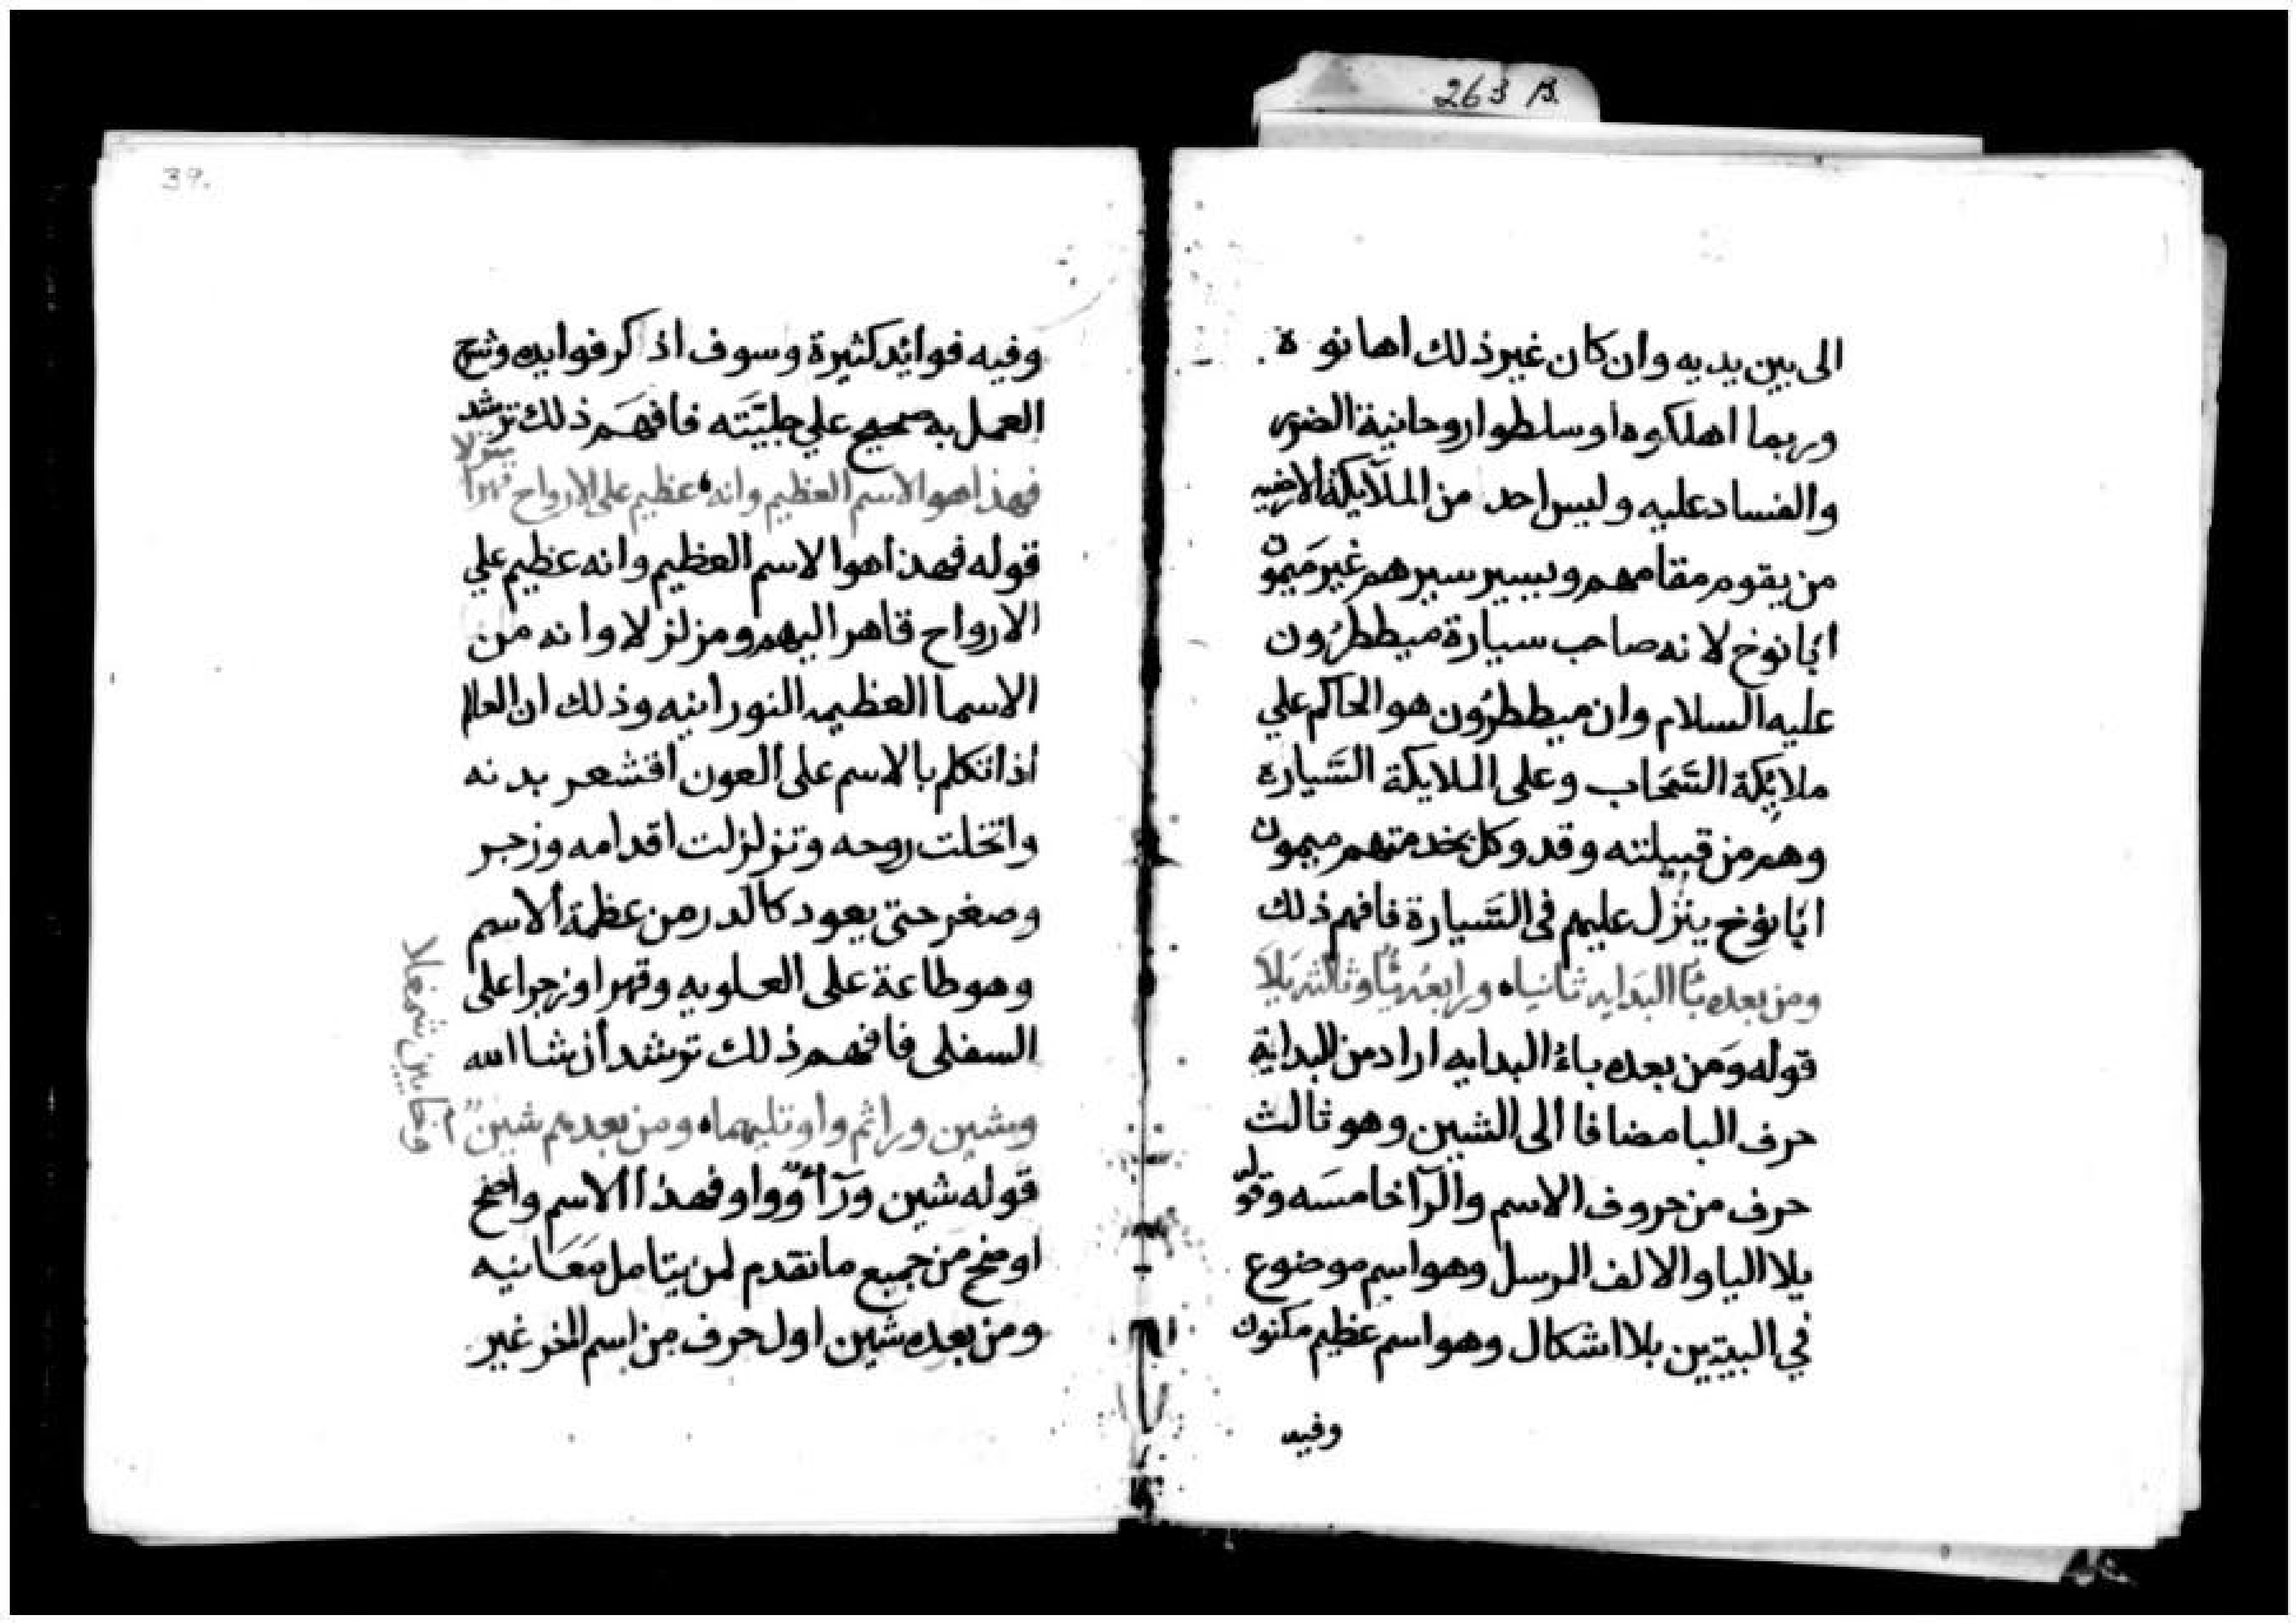 263 B.
الى بين يديه وان كان غير ذلك اهانوه
وربما اهلكوه او سلطوا روحانية الضرى
والفساد عليه وليس احد من الملآيكة الارضيه
من يقوم مقامهم ويسير سيرهم غير ميمون
ابانوخ لانه صاحب سيارة ميططرون
عليه السلام وان ميططرون هو الحاكم علي
ملايكة السحاب وعلى الملايكة السيارة
وهم من قبيلته وقد وكل بخدمتهم ميمون
ابانوخ ينزل عليهم فى السيارة فافهم ذلك
ومن بعده با البدايه ثانياه ورابعه وثالثه يلا
قوله ومن بعده باء البدايه اراد من البداية
حرف البا مضافا الى الشين وهو ثالث
حرف من حروف الاسم والرآ خامسه وقوله
يلا اليا والالف المرسل وهو اسم موضوع
في البيتين بلا اشكال وهو اسم عظيم مكنون
وفيه
39.
وفيه فوائد كثيرة وسوف اذكر فوايده وشرح
العمل به صحيح علي جليته فافهم ذلك ترشد
فهذا هو الاسم العظيم وانه عظيم على الارواح قهرا
قوله فهذا هوا الاسم العظيم وانه عظيم علي
الارواح قاهر اليهم ومزلزلا وانه من
الاسما العظيمه النورانيه وذلك ان العالم
اذا تكلم بالاسم على العون اقشعر بدنه
وانخلت روحه وتزلزلت اقدامه وزجر
وصغر حتى يعود كالدر من عظمة الاسم
وهو طاعة على العلويه وقهرا وزجرا على
السفلى فافهم ذلك ترشد ان شا الله
وبشين وراثم واو تليهماه ومن بعدهم شين
قوله شين ورآ وواو فهذا الاسم واضح
اوضح من جميع ما تقدم لمن يتامل معانيه
ومن بعده شين اول حرف من اسم اخر غير